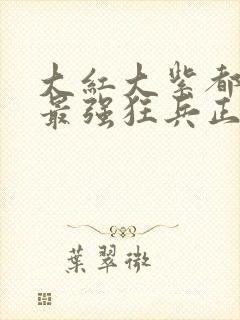 大紅大紫都
最强狂兵正
葉翠微